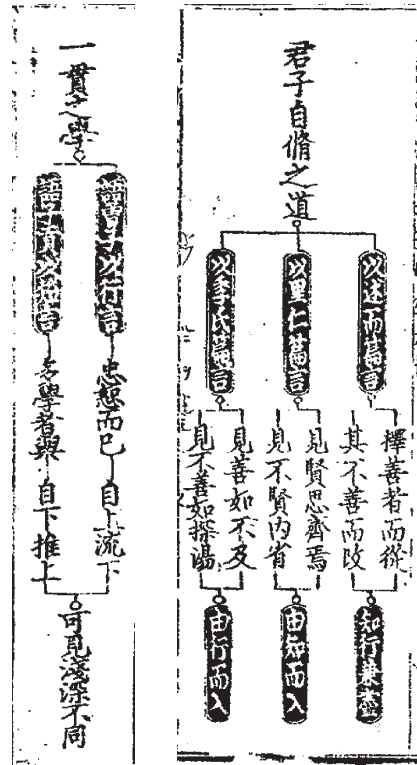 君子自脩之道
以述而篇言
擇善者而從
其不善而改
知行兼盡
以里仁篇言
見賢思齊焉
見不賢內省
由知而入
以季氏篇言
見善如不及
見不善如探湯
由行而入
一貫之學
語曾子以行言
忠恕而已
自上流下
語子貢以知言
多學者與
自下推上
可見淺深不同